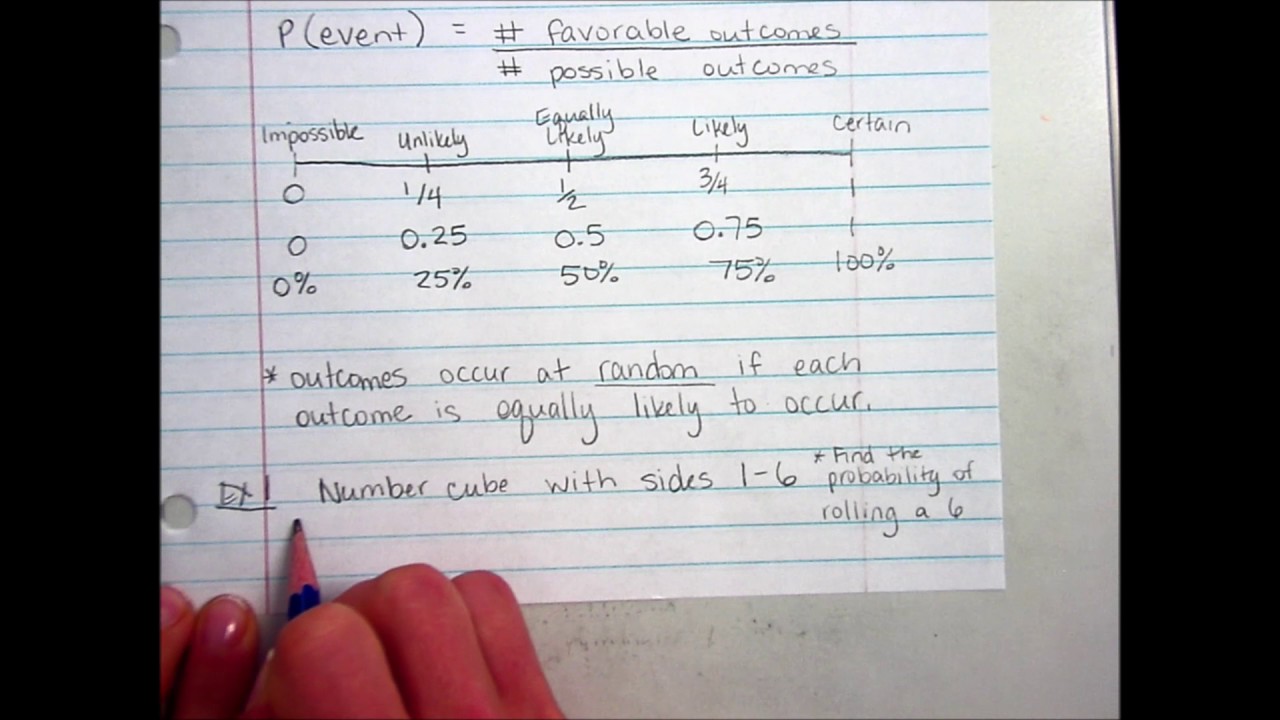 P(event) = # favorable outcomes
# possible outcomes
Impossible Unlikely Equally Likely Likely Certain
0 1/4 1/2 3/4 1
0 0.25 0.5 0.75 1
0% 25% 50% 75% 100%
* outcomes occur at random if each
outcome is equally likely to occur.
Ex 1 Number cube with sides 1-6
* Find the
probability of
rolling a 6